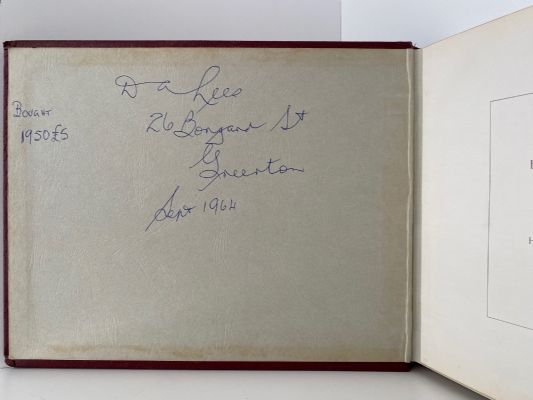 D A Lees
26 Bongard St
Greerton
Sept 1964
BOUGHT
1950 £5